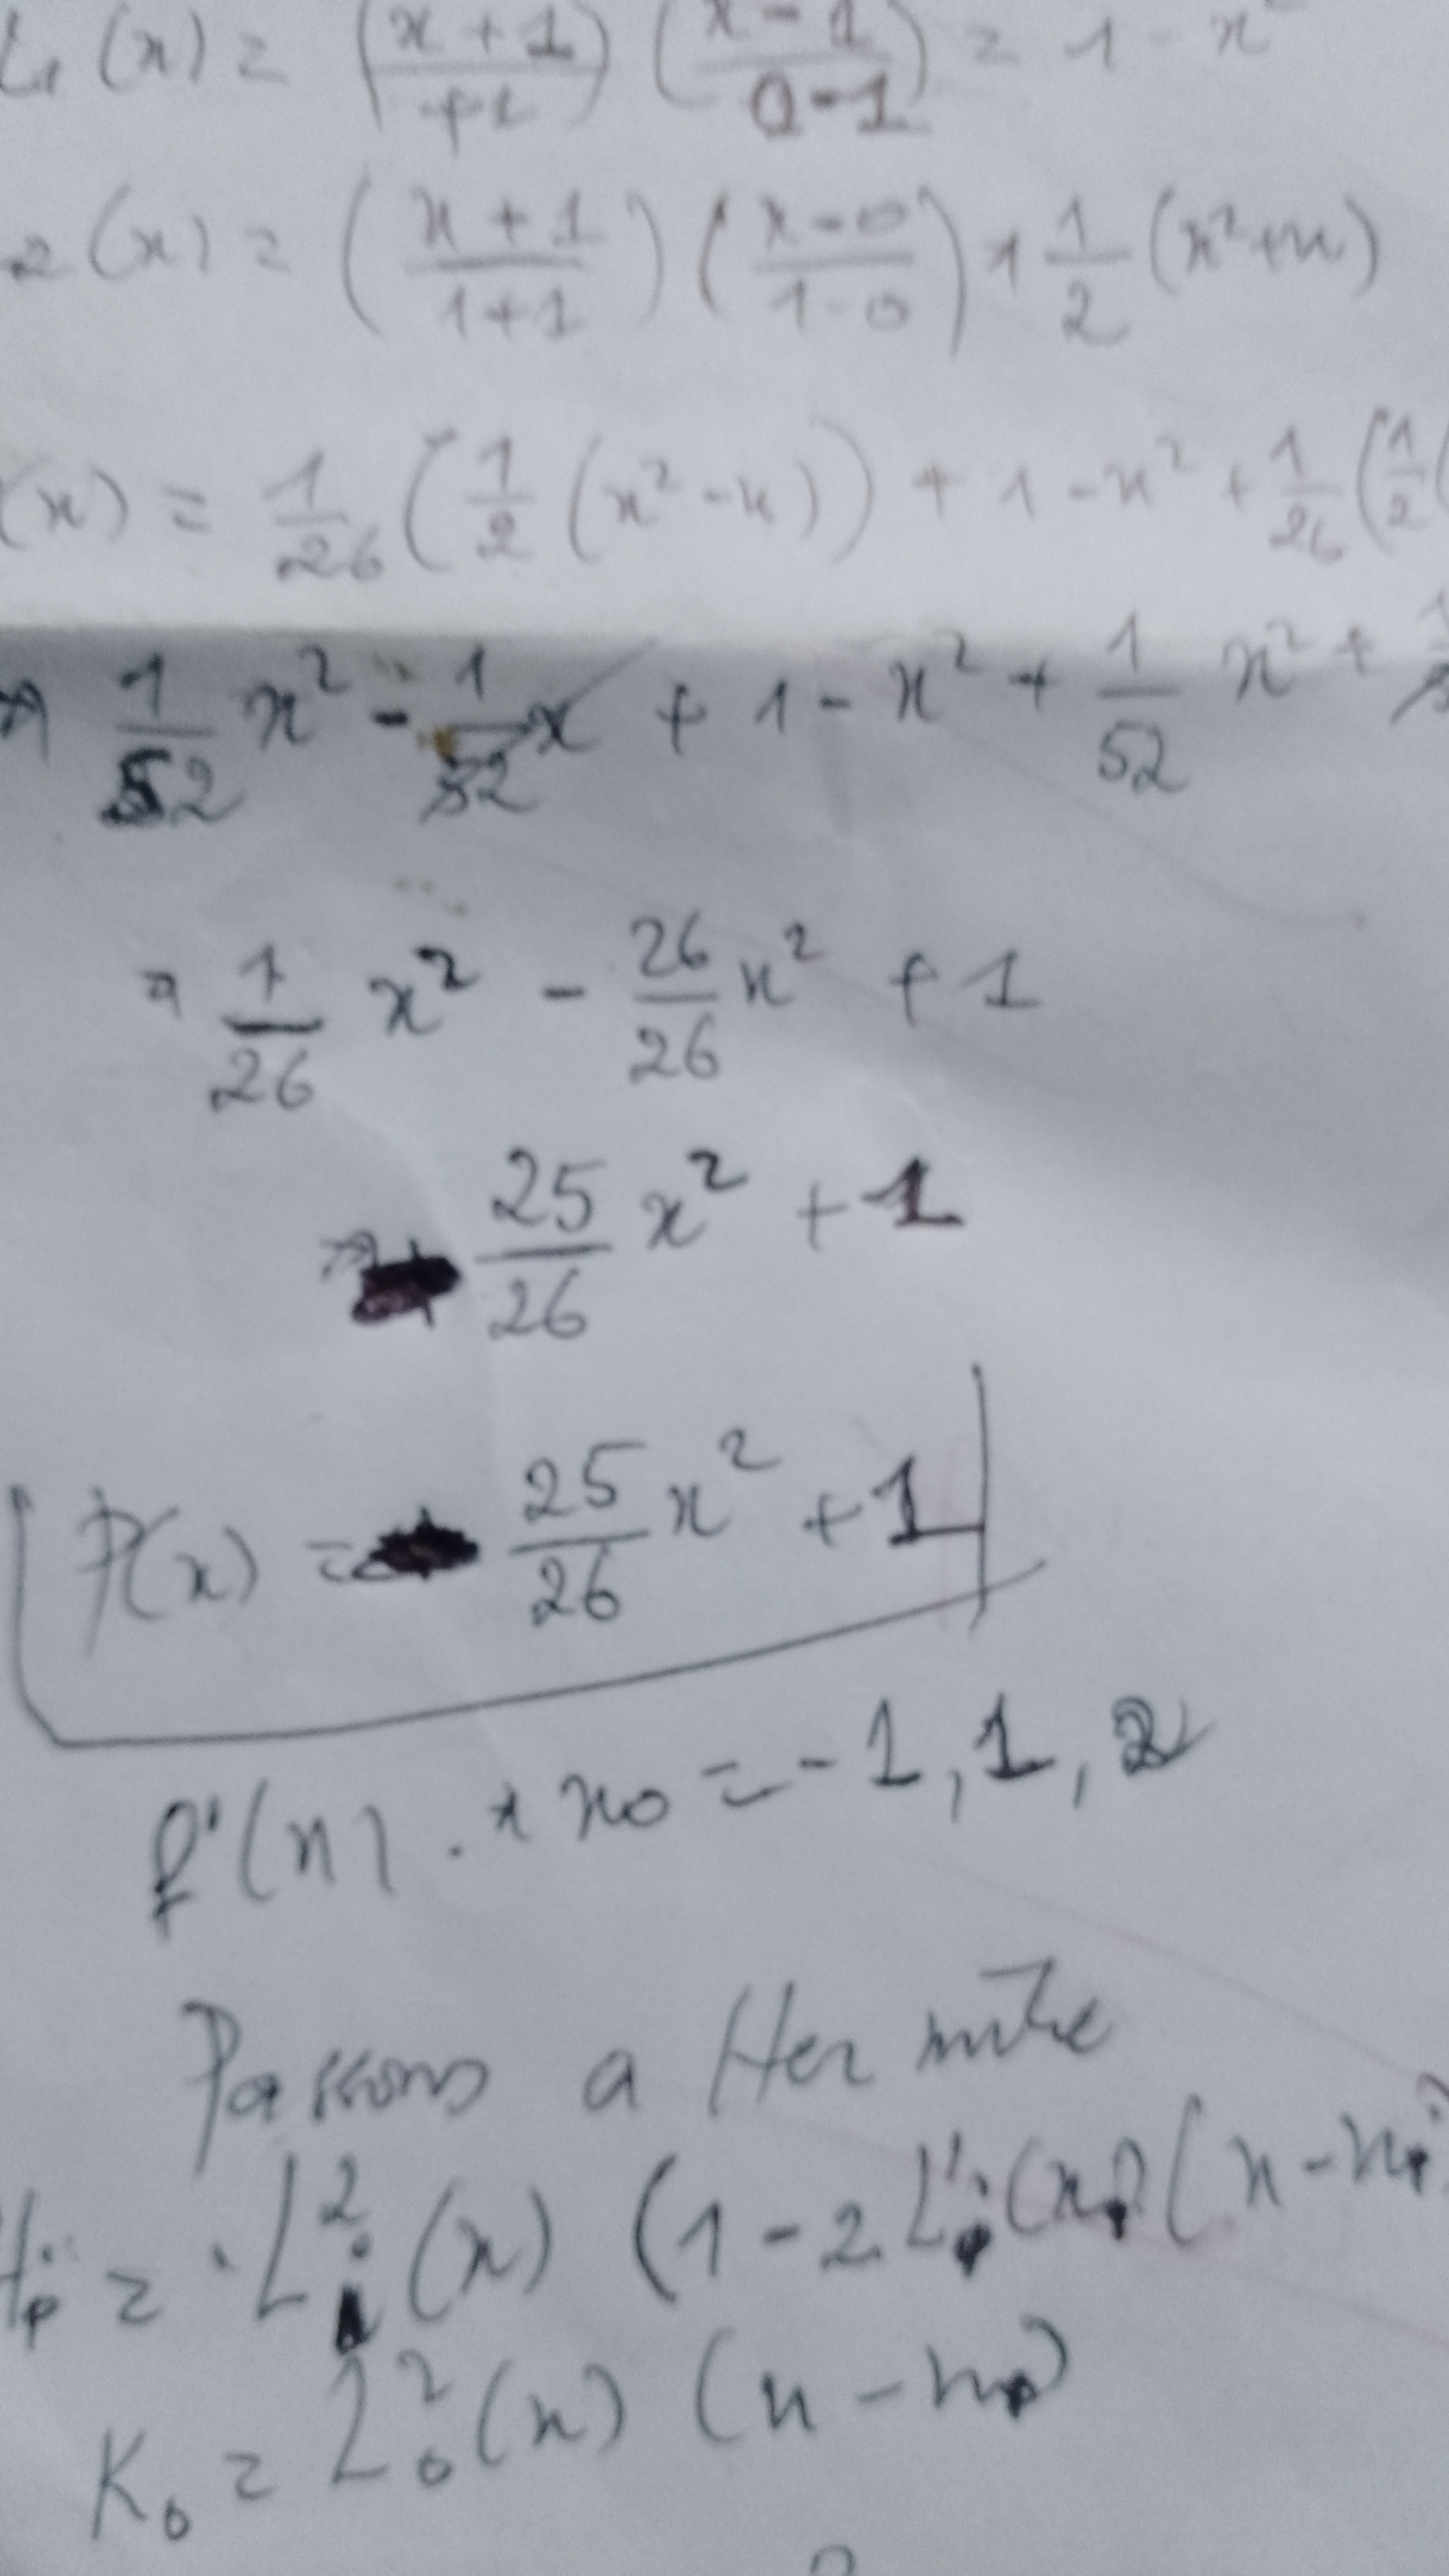 L₁(x) = ((x+1)/(+1)) ((x-1)/(0-1)) = 1 - x²
2(x) = ((x+1)/(1+1)) ((x-0)/(1-0)) + 1/2 (x²+x)
(x) = 1/26 (1/2 (x²-x)) + 1 - x² + 1/26 (1/2 (
⇒ 1/52 x² - 1/52 x + 1 - x² + 1/52 x² +
⇒ 1/26 x² - 26/26 x² + 1
⇒ 25/26 x² + 1
P(x) = 25/26 x² + 1
f'(x). x₀ = -1, 1, 2
Passons a Hermite
Hᵢ = Lᵢ²(x) (1 - 2L'ᵢ(xᵢ)(x - xᵢ)
K₀ = L₀²(x) (x - x₀)